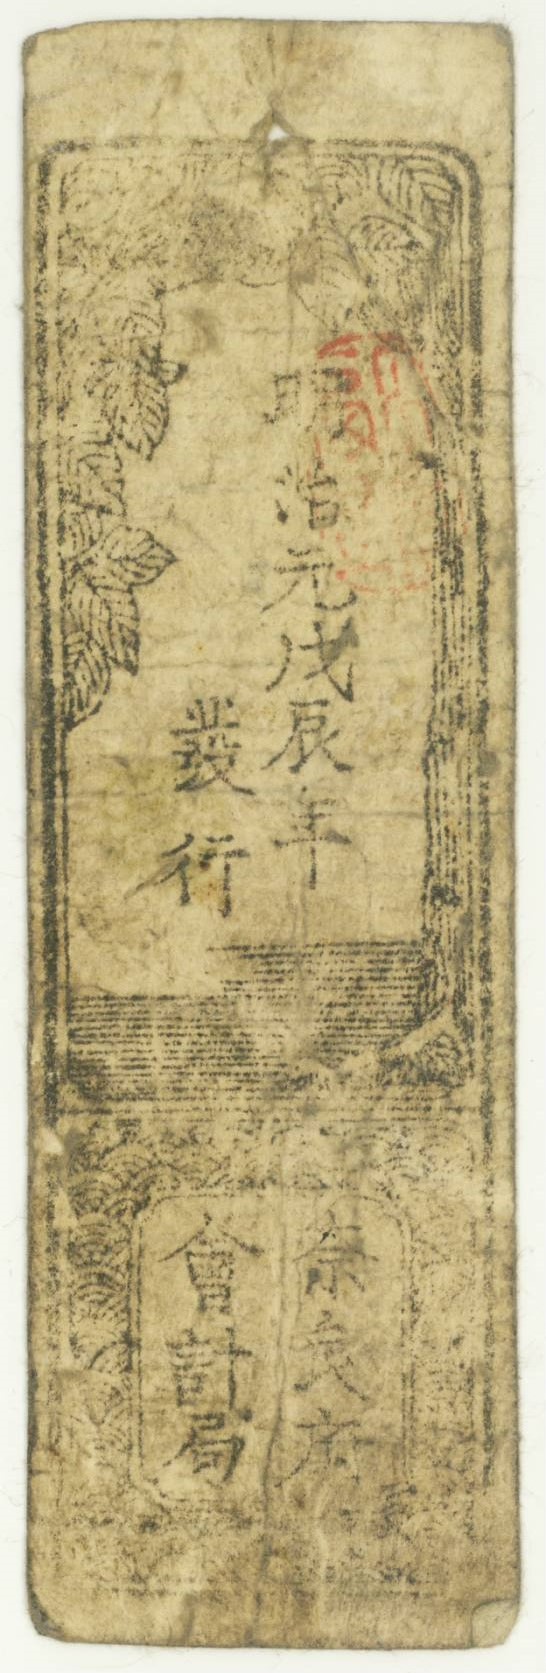 明治元戊辰年
發行
奈良府
會計局